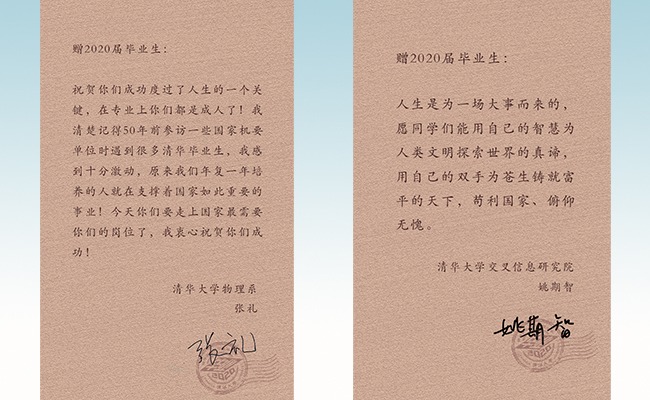 赠2020届毕业生：
祝贺你们成功度过了人生的一个关
键，在专业上你们都是成人了！我
清楚记得50年前参访一些国家机要
单位时遇到很多清华毕业生，我感
到十分激动，原来我们年复一年培
养的人就在支撑着国家如此重要的
事业！今天你们要走上国家最需要
你们的岗位了，我衷心祝贺你们成
功！
清华大学物理系
张礼
张礼
2020
赠2020届毕业生：
人生是为一场大事而来的，
愿同学们能用自己的智慧为
人类文明探索世界的真谛，
用自己的双手为苍生铸就富
平的天下，苟利国家、俯仰
无愧。
清华大学交叉信息研究院
姚期智
姚期智
2020